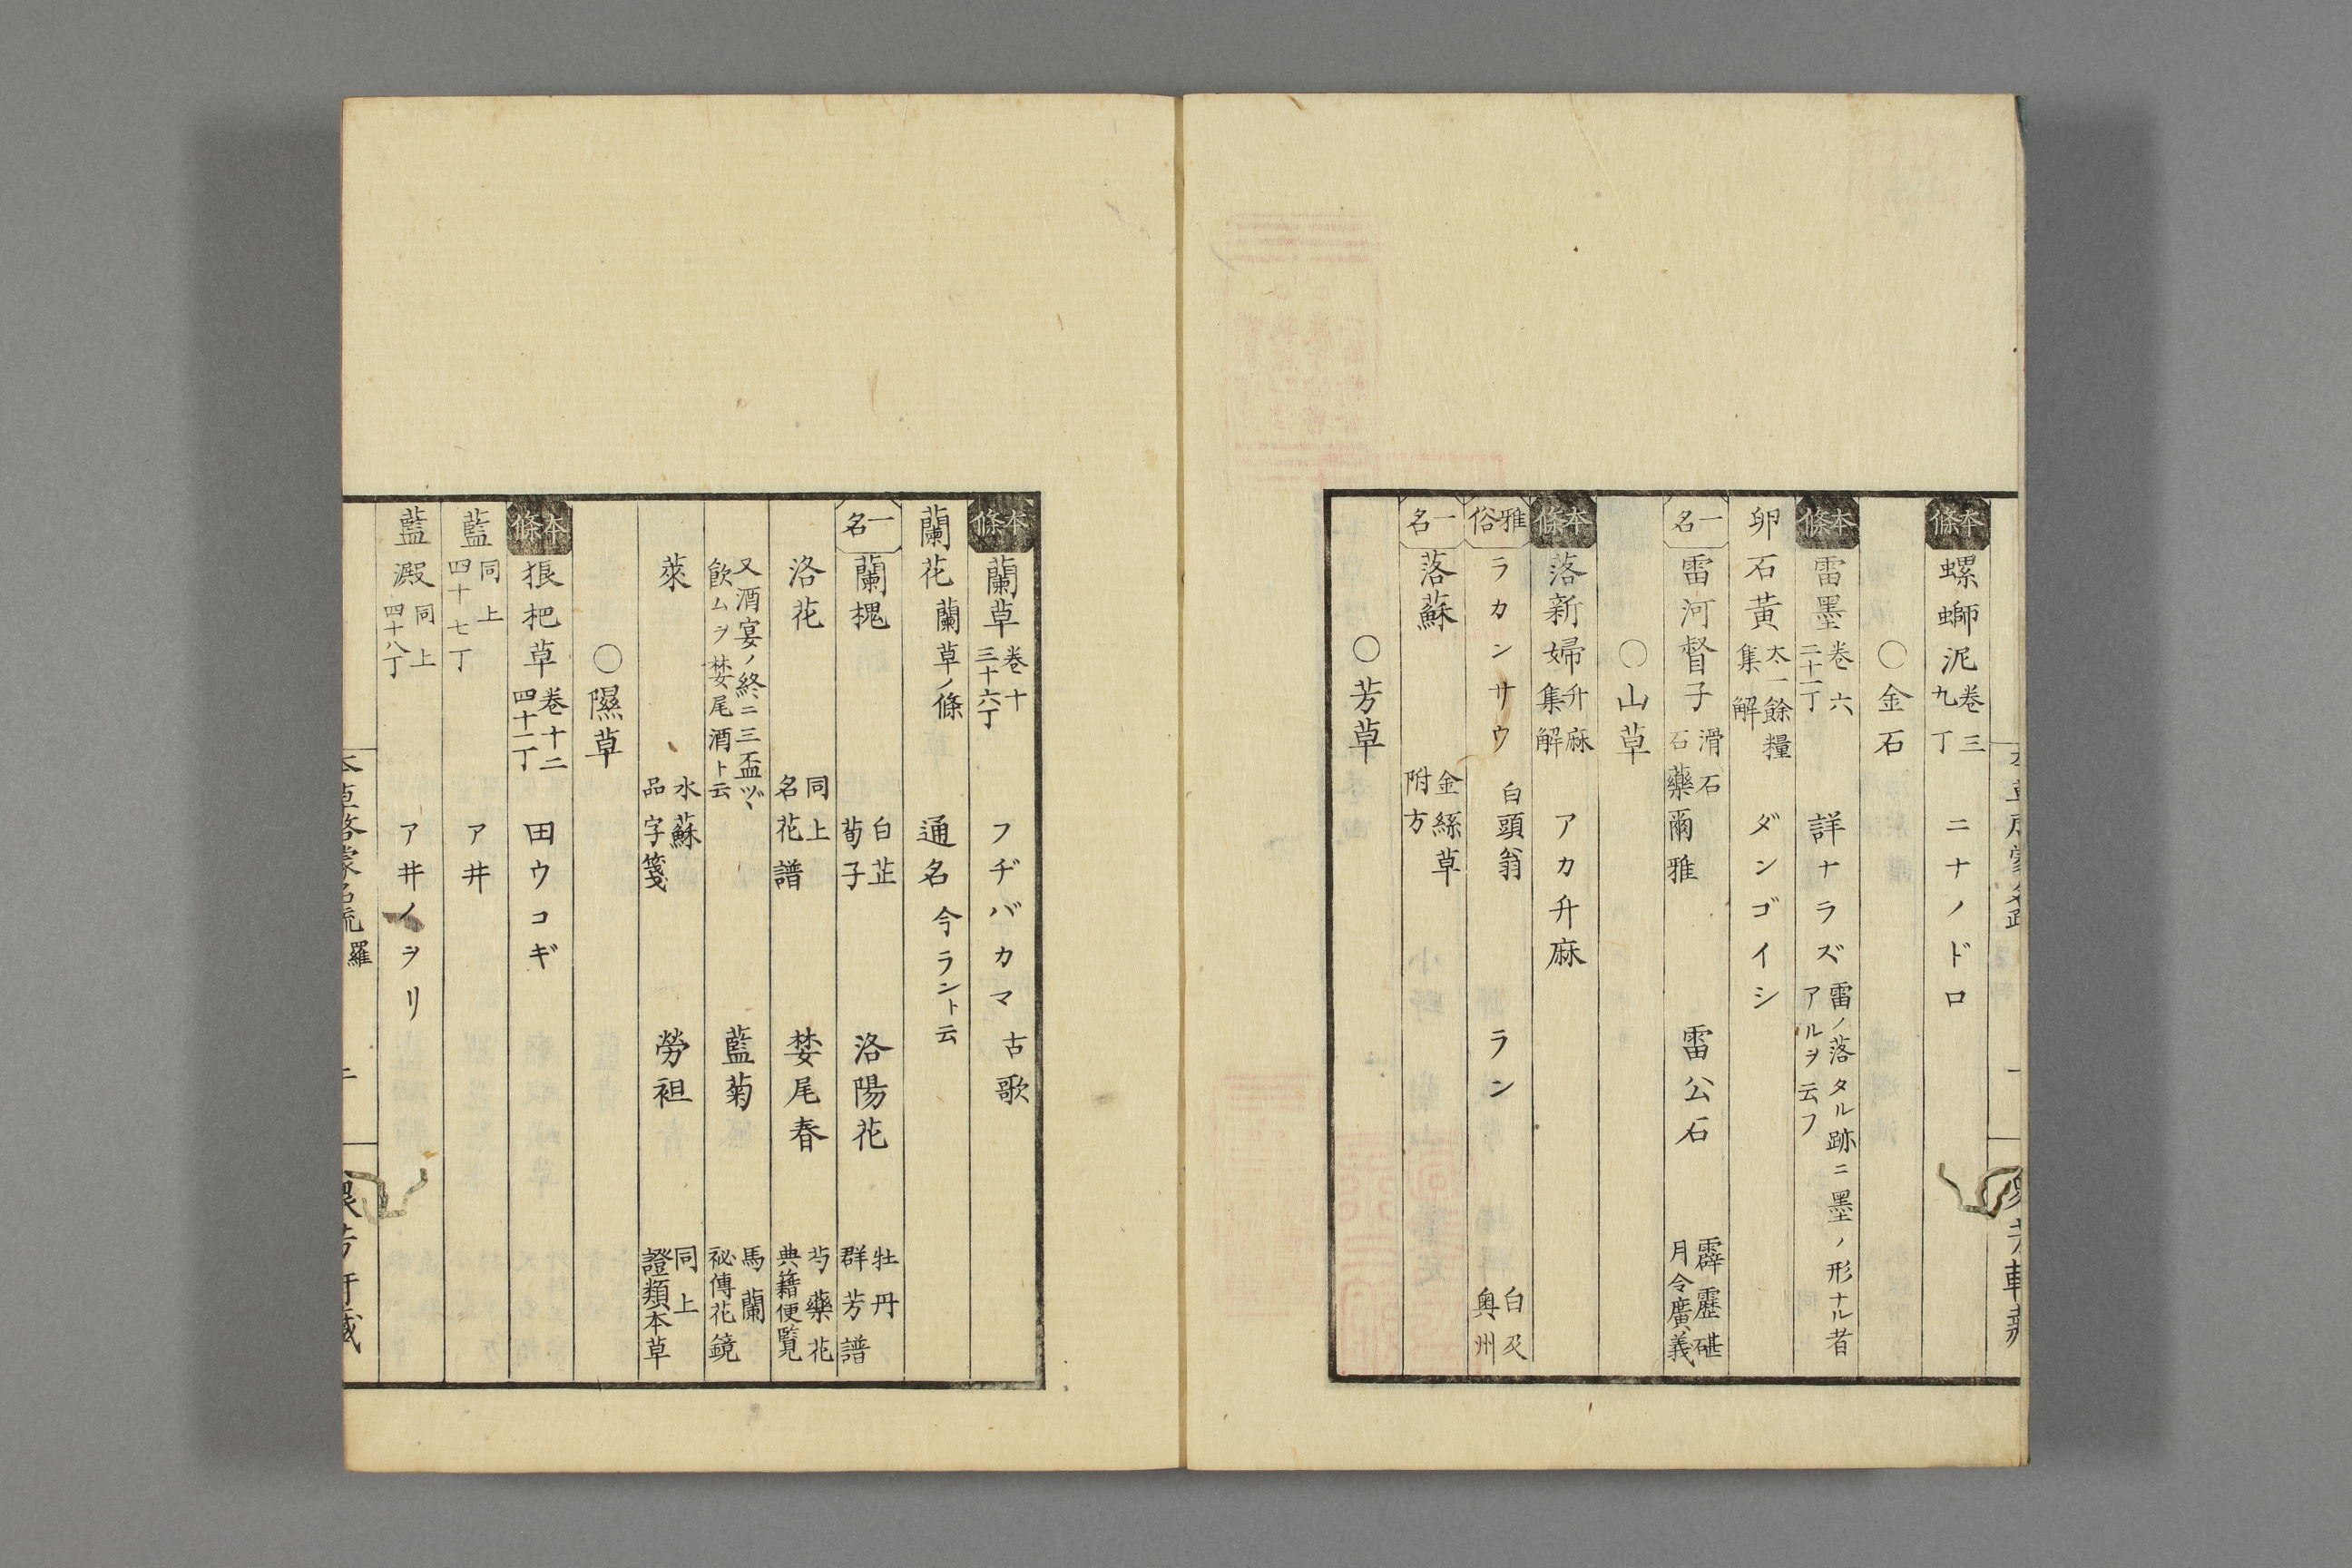 本條 螺螄泥 卷三 九丁 ニナノドロ
○金石
本條 雷墨 卷六 二十一丁 詳ナラズ 雷ノ落タル跡ニ墨ノ形ナル者アルヲ云フ
卵石黃 太一餘糧集解 ダンゴイシ
一名 雷河督子 滑石 石藥爾雅 雷公石 霹靂碪 月令廣義
○山草
本條 落新婦 升麻集解 アカ升麻
雅俗 ラカンサウ 白頭翁 ラン 白及 奥州
一名 落蘇 金絲草附方
○芳草
本條 蘭草 卷十 三十六丁 フヂバカマ 古歌
蘭花 蘭草ノ條 通名 今ラント云
一名 蘭槐 白芷 荀子 洛陽花 牡丹 群芳譜
洛花 同上 名花譜 婪尾春 芍藥花 典籍便覽
又酒宴ノ終ニ三盃ヅヽ飲ムヲ婪尾酒ト云 藍菊 馬蘭 祕傳花鏡
萊 水蘇 品字箋 勞袒 同上 證類本草
○隰草
本條 狼杷草 卷十二 四十一丁 田ウコギ
藍 同上 四十七丁 ア井
藍澱 同上 四十八丁 ア井ノヲリ
羅